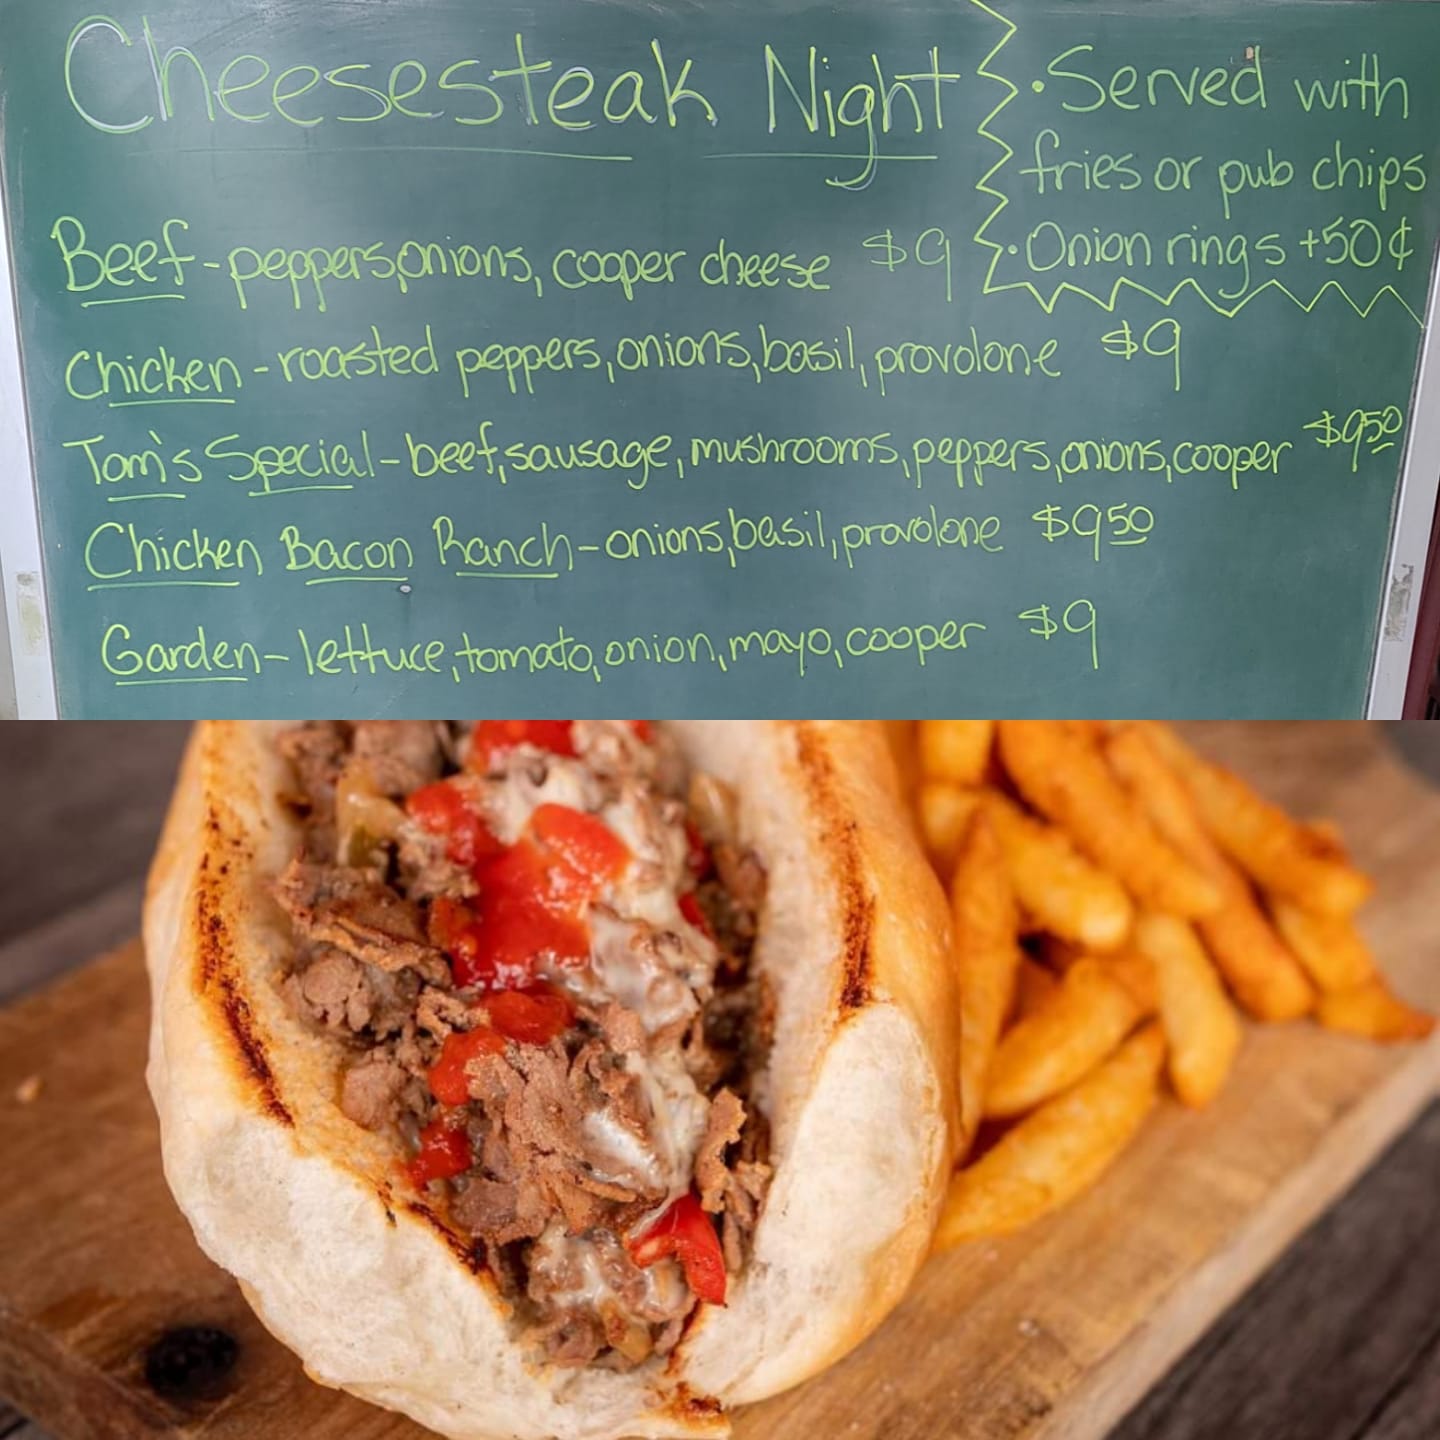 Cheesesteak Night
Beef - peppers, onions, cooper cheese $9
Chicken - roasted peppers, onions, basil, provolone $9
Tom's Special - beef, sausage, mushrooms, peppers, onions, cooper $9 50
Chicken Bacon Ranch - onions, basil, provolone $9 50
Garden - lettuce, tomato, onion, mayo, cooper $9
• Served with
fries or pub chips
• Onion rings +50¢